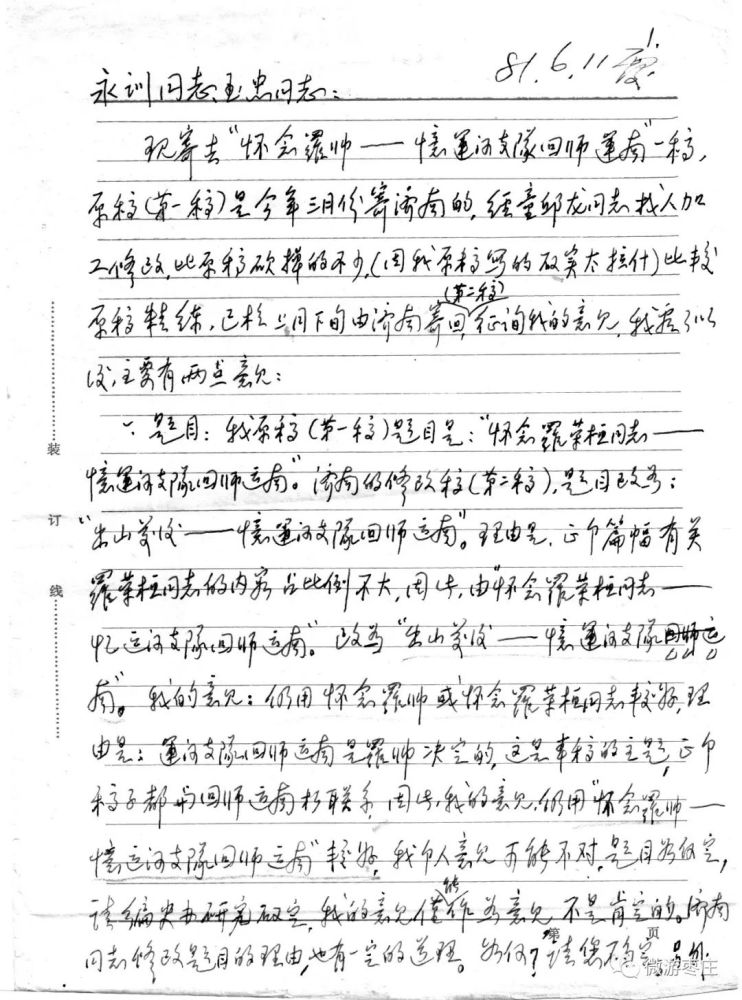 1.
81.6.11
永训同志、玉忠同志：
现寄去"怀念羅帅——憶運河支隊回师運南"一稿，
原稿(第一稿)是今年三月份寄濟南的，經童邱龙同志找人加
工修改，比原稿砍掉的不少，(因我原稿写的确实太拉什)比較
原稿精练，已於上月下旬由济南寄回(第二稿)，征詢我的意见，我看了以
后，主要有两点意见：
一、题目：我原稿(第一稿)题目是："怀念羅荣桓同志——
憶運河支隊回师运南"。濟南的修改稿(第二稿)，题目改为：
"出山前后——憶運河支隊回师运南"。理由是，正个篇幅有关
羅荣桓同志的内容占比例不大，因此，由"怀念羅荣桓同志——
忆运河支隊回师运南"。改为"出山前后——憶運河支隊回师运
南"。我的意见：仍用怀念羅帅或怀念羅荣桓同志較好，理
由是：運河支隊回师运南是羅帅决定的，这是本稿的主题，正个
稿子都与回师运南相联系，因此，我的意见，仍用"怀念羅帅——
憶运河支隊回师运南"較好，我个人意见可能不对，题目如何定，
请编史办研究确定，我的意见僅能作为意见，不是肯定的。濟南
同志修改题目的理由，也有一定的道理。如何？请您们定。另外
装
订
线
第 页
微游枣庄